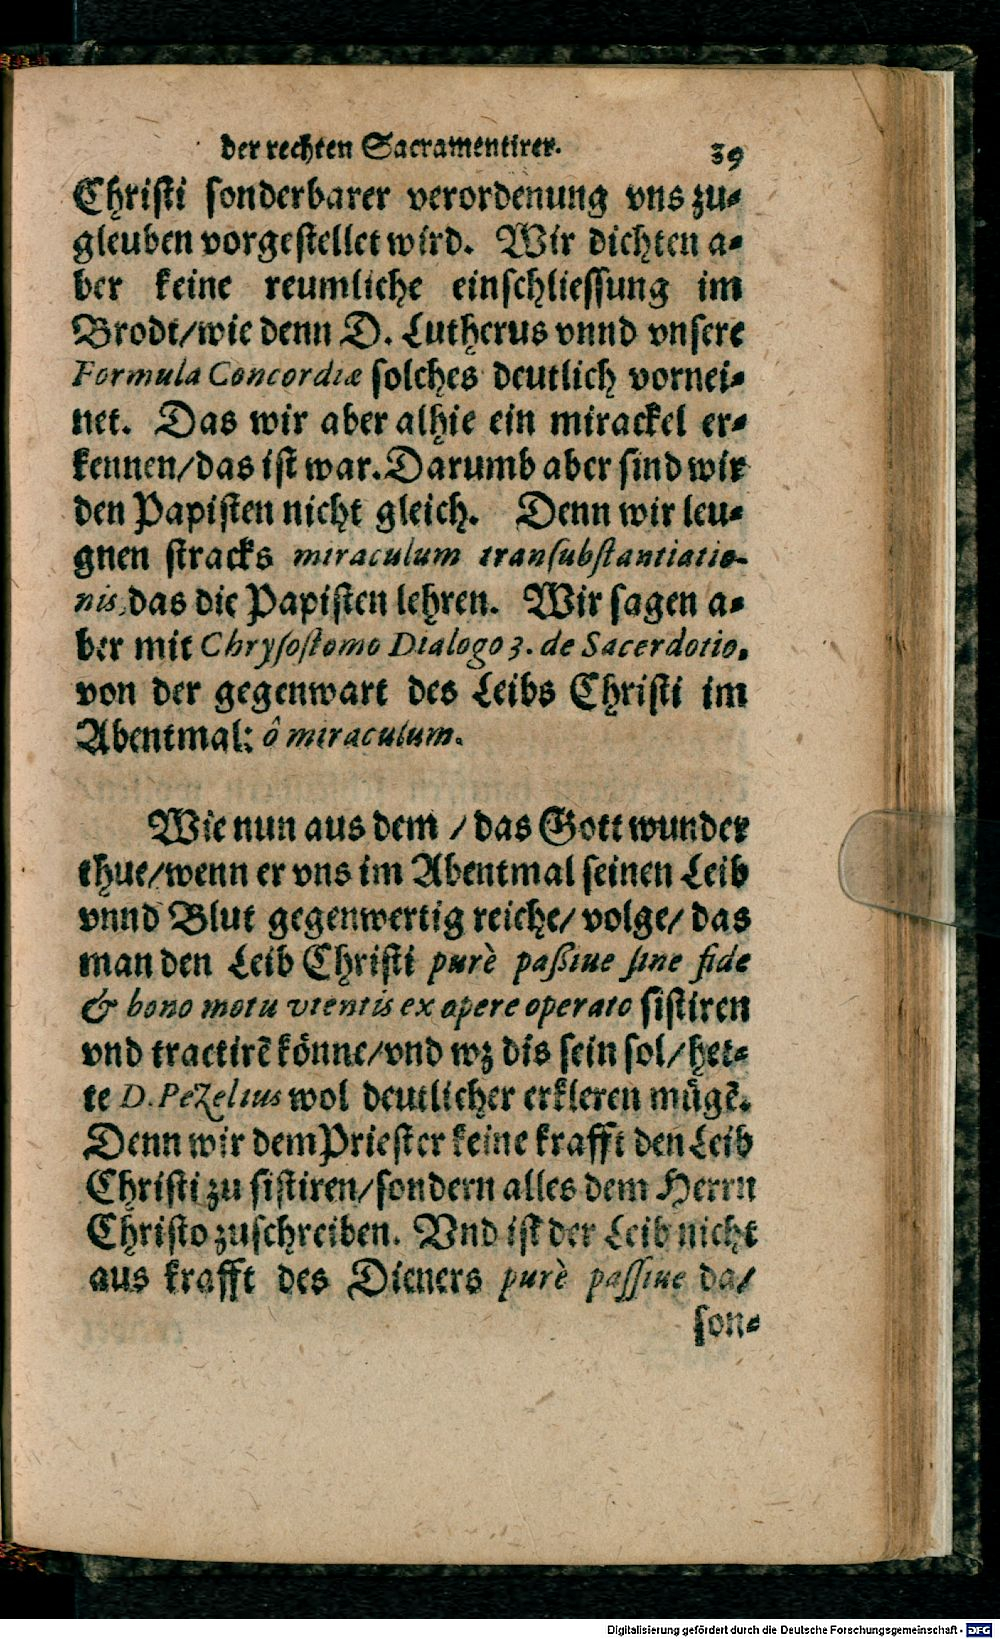 der rechten Sacramentirer. 39
Christi sonderbarer verordenung vns zu⸗
gleuben vorgestellet wird. Wir dichten a⸗
ber keine reumliche einschliessung im
Brodt/wie denn D. Lutherus vnnd vnsere
Formula Concordiæ solches deutlich vornei⸗
net. Das wir aber alhie ein mirackel er⸗
kennen/das ist war. Darumb aber sind wir
den Papisten nicht gleich. Denn wir leu⸗
gnen stracks miraculum transubstantiatio-
nis, das die Papisten lehren. Wir sagen a⸗
ber mit Chrysostomo Dialogo 3. de Sacerdotio.
von der gegenwart des Leibs Christi im
Abentmal: ô miraculum.
Wie nun aus dem / das Gott wunder
thue/wenn er vns im Abentmal seinen Leib
vnnd Blut gegenwertig reiche/ volge/ das
man den Leib Christi purè paßiue sine fide
& bono motu vtentis ex opere operato sistiren
vnd tractirẽ könne/vnd wz dis sein sol/het⸗
te D. Pezelius wol deutlicher erkleren mügẽ.
Denn wir dem Priester keine krafft den Leib
Christi zu sistiren/sondern alles dem Herrn
Christo zuschreiben. Vnd ist der Leib nicht
aus krafft des Dieners purè passiue da/
son⸗
Digitalisierung gefördert durch die Deutsche Forschungsgemeinschaft - DFG